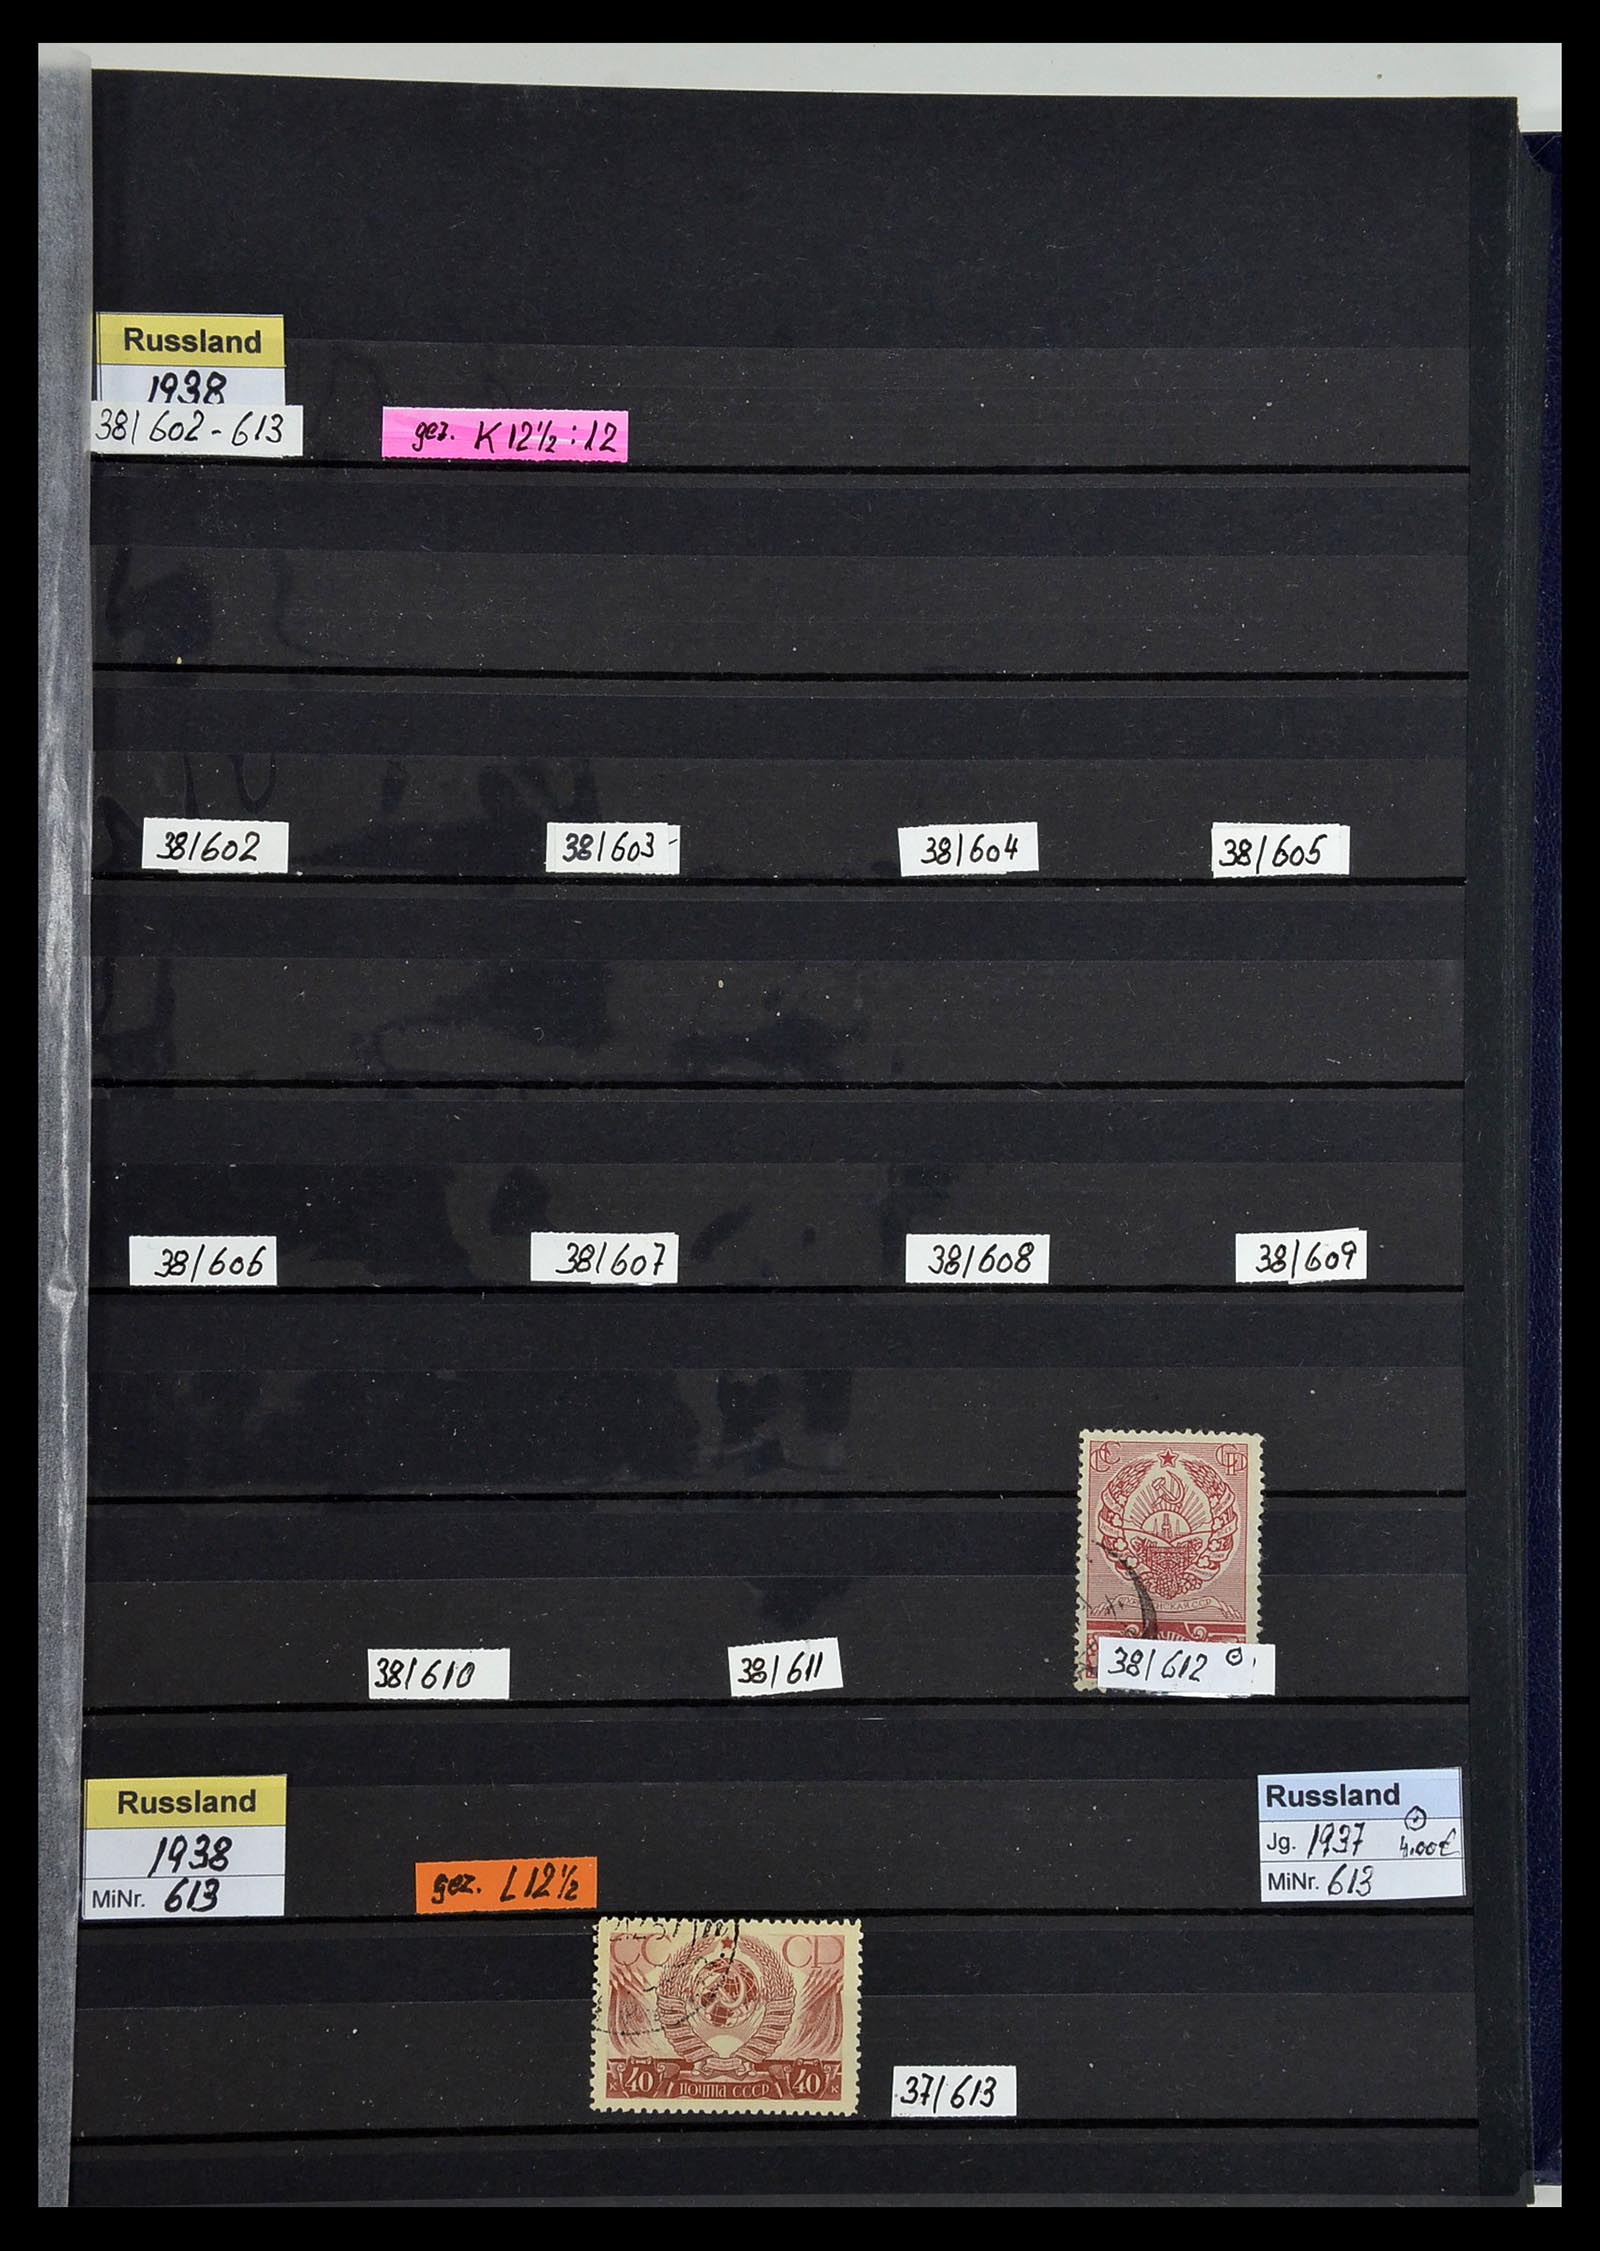 Russland
1938
38/602-613
gez. K12½:12
38/602
38/603-
38/604
38/605
38/606
38/607
38/608
38/609
СССР
ССР
38/610
38/611
38/612
Russland
1938
MiNr. 613
gez. L12½
Russland
Jg. 1937 4.00€
MiNr. 613
СССР
к 40 ПОЧТА СССР 40 к
37/613